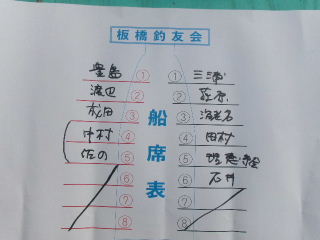 板橋釣友会
豊島 ① ① 三浦
渡辺 ② ② 萩原
松田 ③ ③ 海老名
中村 ④ ④ 田村
佐の ⑤ ⑤
⑥ ⑥ 石井
⑦ ⑦
⑧ ⑧
船席表